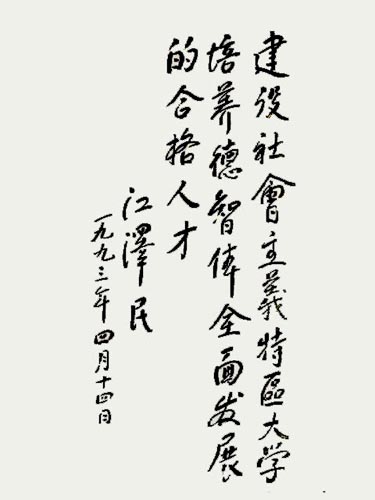 建设社會主義特區大学
培养德智体全面发展
的合格人才
江澤民
一九九三年四月十四日